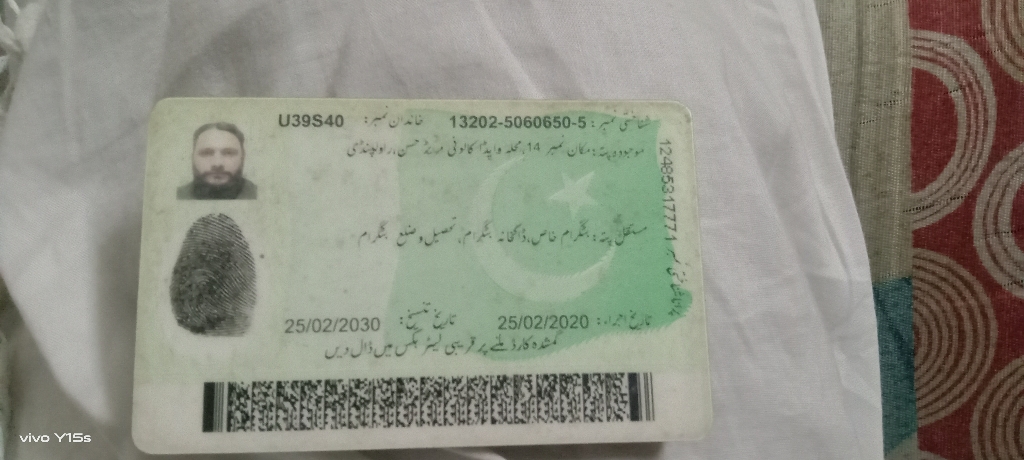 شناختی نمبر: 13202-5060650-5 خاندان نمبر: U39S40
موجودہ پتہ: مکان نمبر 14، محلہ واپڈا کالونی حسن، راولپنڈی
مستقل پتہ: بٹگرام خاص، ڈاکخانہ بٹگرام، تحصیل و ضلع بٹگرام
تاریخ اجراء: 25/02/2020 تاریخ تنسیخ: 25/02/2030
گمشدہ کارڈ ملنے پر قریبی لیٹر بکس میں ڈال دیں
vivo Y15s